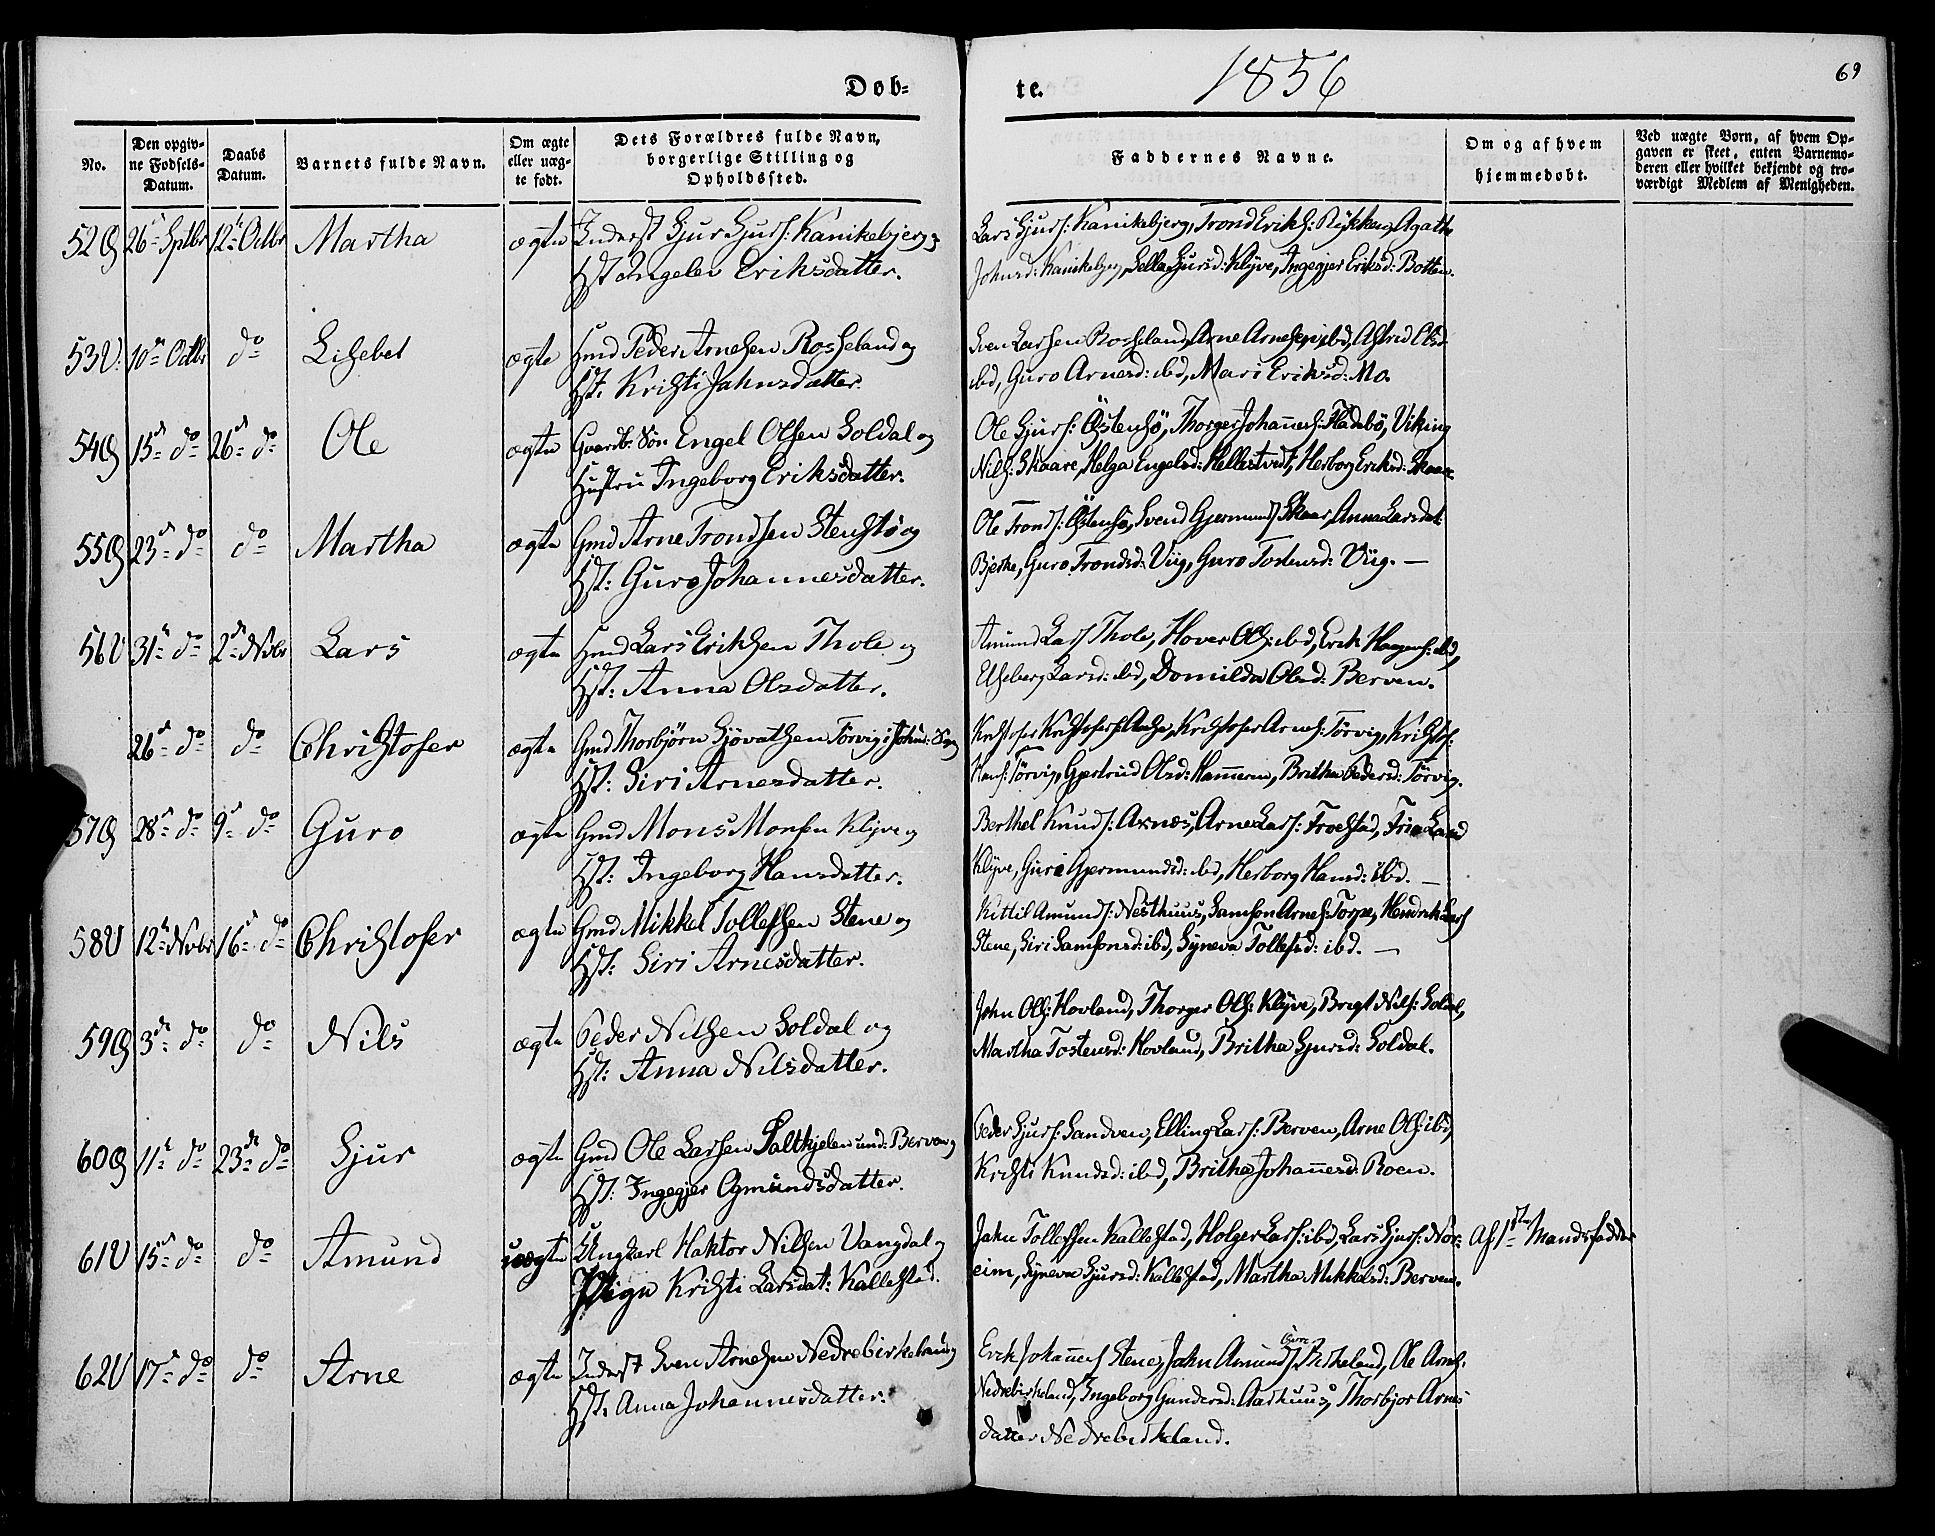 Døb=
te.
1856
69
No.
Den opgiv=
ne Fødsels=
Datum.
Daabs
Datum.
Barnets fulde Navn.
Om ægte
eller uæg=
te født.
Dets Forældres fulde Navn,
borgerlige Stilling og
Opholdssted.
Faddernes Navne.
Om og af hvem
hjemmedøbt.
Ved uægte Børn, af hvem Op=
gaven er skeet, enten Barnemo=
deren eller hvilket bekjendt og tro=
værdigt Medlem af Menigheden.
52 26 Sptbr 12 Octbr Martha ægte Inderst Sjur Sjurs: Kanikebjerg og
Hst Ingelev Eriksdatter.
Lars Sjurs: Kanikebjerg, Trond Eriks: Rykken, Agatha
Johnsd: Kanikebjerg, Sella Sjursd: Klyve, Ingegjer Eriksd: Botten.
53 U. 10 Octbr do Lisebet ægte Hmd Peder Arnesen Rosseland og
Hst: Kristi Jahnsdatter.
Sven Larsen Rosseland, Arne Arnesen ibd, Astrid Olsd:
ibd, Guro Arnesd: ibd, Mari Eriksd: Mo.
54 15 do 26 do Ole ægte Gaardbr Søn Engel Olsen Soldal og
Hustru Ingeborg Eriksdatter.
Ole Sjurs: Östensö, Thorger Johannes: Fladebö, Viking
Nils: Skaare, Helga Engelsd: Hellestveit, Herborg Eriksd: Skaar.
55 23 do do Martha ægte Gmd Arne Trondsen Stenstø og
Hst: Guro Johannesdatter.
Ole Tronds: Östensö, Svend Gjermunds Skaar, Anna Larsdat:
Bjerke, Guro Trondsd: Viig, Guro Tostensd: Viig. —
56 U 31 do 2 Nvbr Lars ægte Hmd Lars Eriksen Thole og
Hst: Anna Olsdatter.
Amund Lars Thole, Hover Ols: ibd, Erik Haagens: ibd,
Elseberg Larsd: ibd, Domilda Olsd: Berven.
26 do do Christofer ægte Gmd Thorbjörn Sjovatsen Törvig i
Hst: Siri Arnesdatter.
Kristofer Kristofers Aasen, Kristofer Arnes: Törvig, Kristof:
Hans: Törvig, Gjertrud Olsd: Hammeren, Britha Pedersd: Törvig.
57 28 do 9 do Guro ægte Gmd Mons Monsen Klyve og
Hst: Ingeborg Hansdatter.
Berthel Knuds: Axnæs, Arne Lars: Froestad,
Klyve, Guri Gjermundsd: ibd, Herborg Hansd: ibd. —
58 U 12 Nvbr 16 do Christofer ægte Gmd Mikkel Tollefsen Stene og
Hst: Siri Arnesdatter.
Kittil Amunds: Nesthuus, Samson Arnes: Torpe, Hendrik Lars
Stene, Siri Samsonsd: ibd, Syneva Tollefsd: ibd. —
59 3 do do Nils ægte Peder Nilsen Soldal og
Hst: Anna Nilsdatter.
John Ols: Hovland, Thorger Ols: Klyve, Brigt Nils: Soldal,
Martha Tostensd: Hovland, Britha Sjursd: Soldal.
60 11 do 23 do Sjur ægte Gmd Ole Larsen Saltkjelen und: Berven og
Hst: Ingegjer Ogmundsdatter.
Peder Sjurs: Sandven, Elling Lars: Berven, Arne Ols: ibd,
Kristi Knudsd: ibd, Britha Johannesd: Roen.
61 U 15 do do Amund uægte Ungkarl Haktor Nilsen Vangdal og
Pige Kristi Larsdat: Kallestad.
Jahn Tollefsen Kallestad, Holger Lars: ibd, Lars Sjurs: Nor:
eim, Syneva Sjursd: Kallestad, Martha Mikkelsd: Berven.
Af 1ste Mandsfadder
62 U 17 do do Arne ægte Inderst Sven Arnesen Nedrebirkeland og
Hst: Anna Johannesdatter.
Erik Johannes Stene, Jahn Amunds Birkeland, Ole Arnes:
Nedrebirkeland, Ingeborg Gundersd: Aarhuus, Thorbjor Arnes
datter Nedrebirkeland.